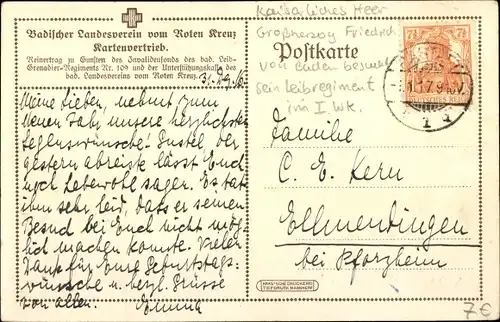 Badischer Landesverein vom Roten Kreuz
Kartenvertrieb.
Reinertrag zu Gunsten des Invalidenfonds des bad. Leib-
Grenadier-Regiments Nr. 109 und der Unterstützungskasse des
bad. Landesvereins vom Roten Kreuz.
31. Dez. 16.
Meine Lieben, nehmt zum
Neuen Jahr unsere herzlichsten
Segenswünsche! Gustel, der
gestern abreiste lässt Euch
noch Lebewohl sagen. Es tat
ihm sehr leid, dass er seinen
Besuch bei Euch nicht mög-
lich machen konnte. Vielen
Dank für Eure Geburtstags-
wünsche u. herzl. Grüsse
von allen.
Kaiserliches Heer
Großherzog Friedrich
von Baden besucht
sein Leibregiment
im I. Wk.
Postkarte
7½ 7½
DEUTSCHES REICH
Familie
C. E. Kern
Ellmendingen
bei Pforzheim
7€